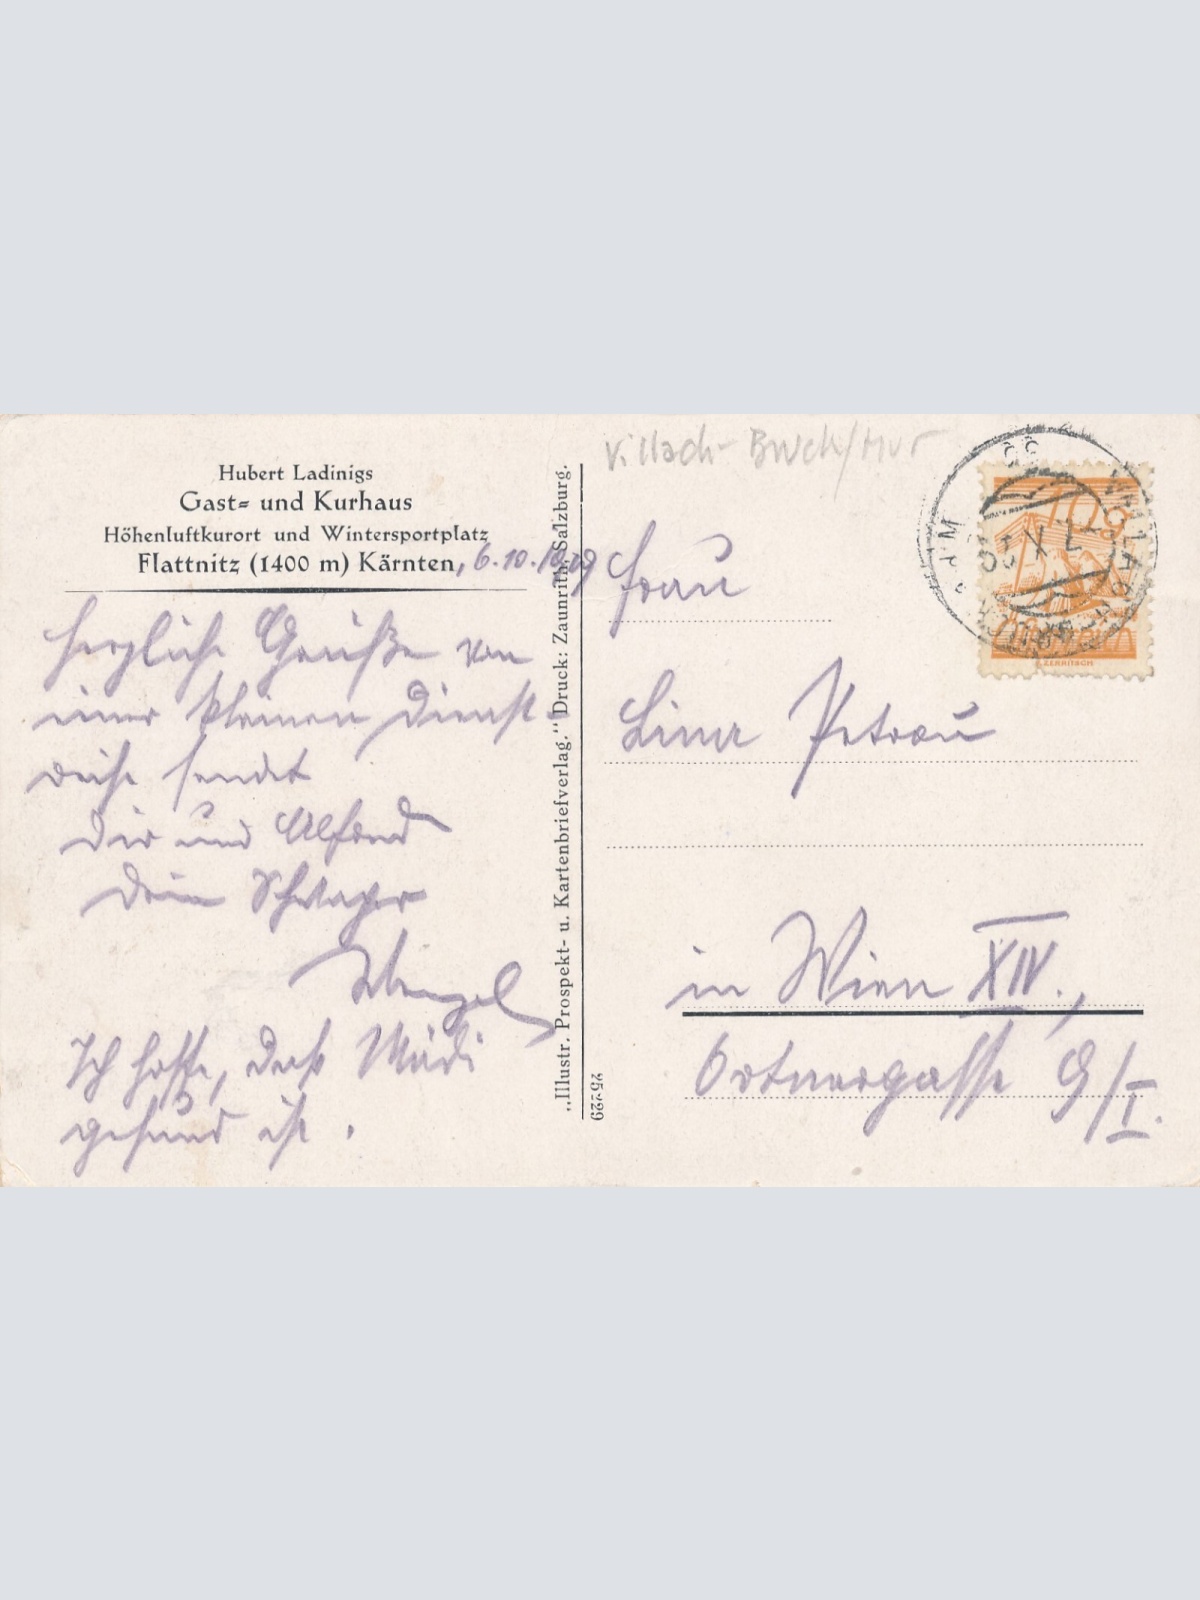 Hubert Ladinigs
Gast= und Kurhaus
Höhenluftkurort und Wintersportplatz
Flattnitz (1400 m) Kärnten
, 6.10.
Herzliche Grüße von
einer kleinen Dienst-
reise sendet
Dir und Alfred
Dein Schwager
Ich hoffe, daß Mädi
gesund ist.
„Illustr. Prospekt- u. Kartenbriefverlag." Druck: Zaunrith, Salzburg.
25229
Villach - Bruck/Mur
Frau
Petrau
in Wien XIV.,
Ortnergasse 9/I.